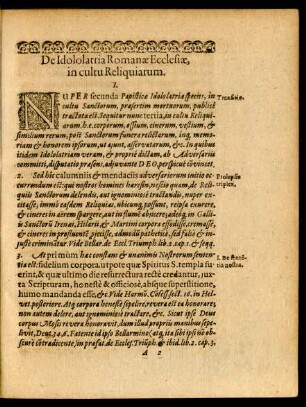 De Idololatria Romanæ Ecclesiæ,
in cultu Reliquiarum.
I.
NUPER secunda Papisticæ Idololatriæ species, in
cultu Sanctorum, præsertim mortuorum, publicè
tractata est. Sequitur nunc tertia, in cultu Reliqui-
arum. h. e. corporum, ossium, cinerum, vestium, &
similium rerum, post Sanctorum funera relictarum, ing. memo-
riam & honorem ipsorum, ut ajunt, asservatarum, &c. In quibus
itidem Idololatriam veram, & propriè dictam, ab Adversariis
committi, disputatio præsens, adjuvante DEO, perspicuè evincet.
2. Sed hic calumniis & mendaciis adversariorum initio oc-
currendum est: qui nostros homines hæresin, nescio quam, de Reli-
quiis Sanctorum defendisse, aut ignominiosè tractandis, nuper ex-
citasse, immò easdem Reliquias, ubicunq; possunt, turpia exurere,
& cineres in aërem spargere, aut in flumè abjicere; adeóq; in Galli-
is Sanctorũ Irenæi, Hilarii, & Martini corpora effodisse, cremasse,
& cineres in profluentē jecisse, admodū patenter, sed falsò & in-
justè criminātur. Vide Bellar. de Eccl. Triumph. lib. 2. cap. 1. & seqq.
3. At primùm, hæc constans & unanimis Nostrorum senten-
tia est: fidelium corpora, utpote quæ Spiritus S. templa fu-
erint, & quæ ultimo die resurrectura rectè credantur, juxta
Scripturam, honestè & officiosè, absque superstitione,
humo mandanda esse, &c. Vide Harmō. Cōfess. sect. 16. in Hel-
vet. posteriore. Atq; corpora honestè sepelire, revera est ea honora-
re, non autem delere, aut ignominiosè tractare, &c. Sicut ipse Deus
corpus Mosis revera honoravit, dum illud propriis manibus sepe-
livit, Deut. 34. 6. Fatente id ipso Bellarmino (atq; ita sibi ipsi nō ob-
scurè cōtradicente) in præfat. de Eccles. Triũph. & ibid. lib. 2. cap. 3.
Prolepsis
triplex.
1. De sentē-
tia nostra.
A 2